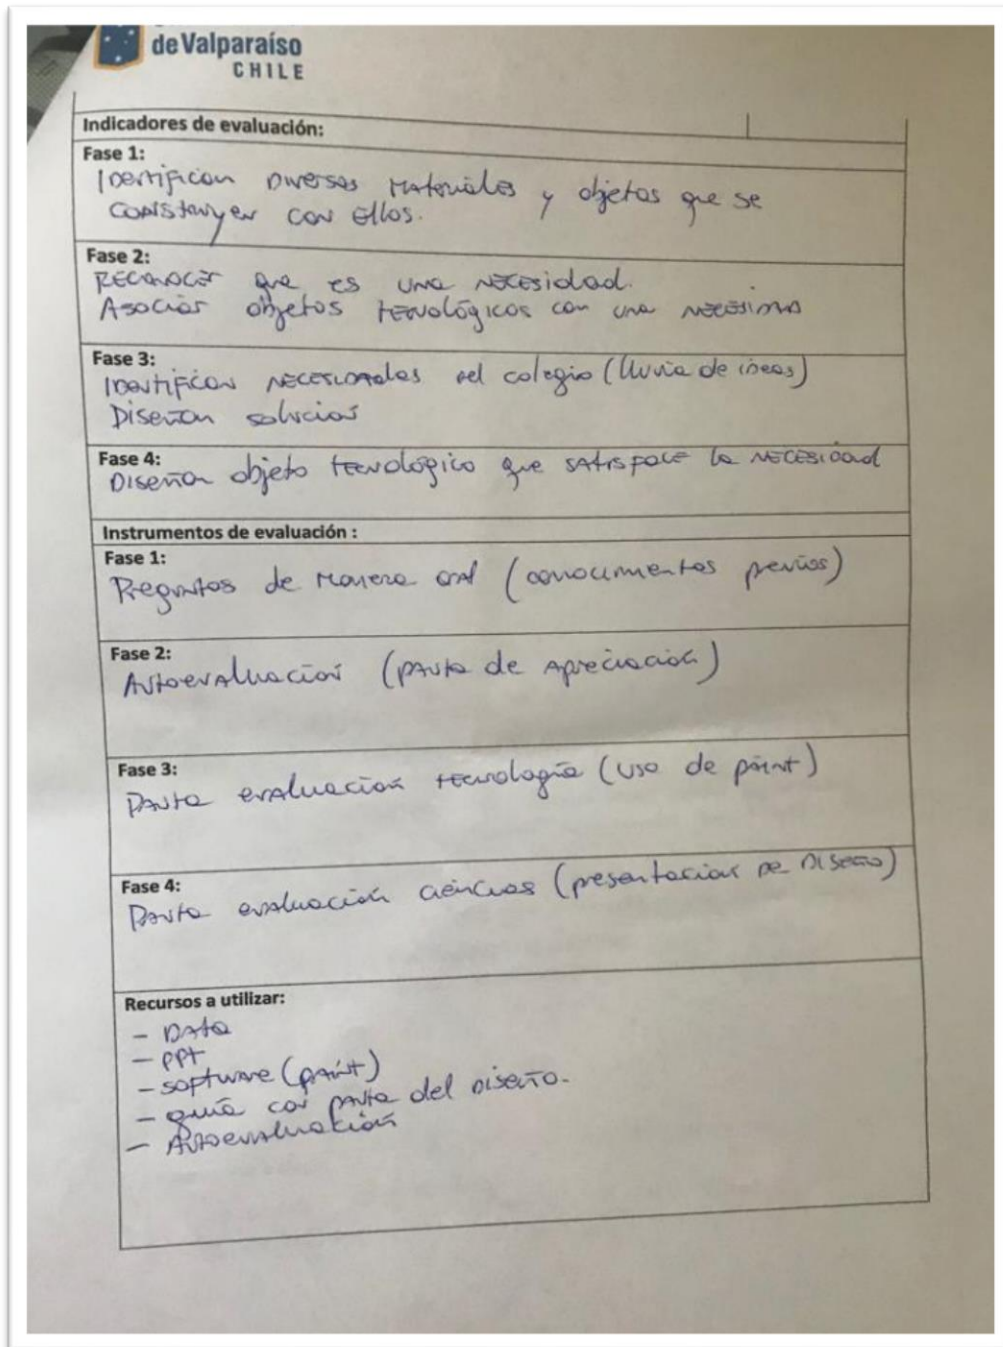 de Valparaíso
CHILE
Indicadores de evaluación:
Fase 1:
Identifican diversos materiales y objetos que se
construyen con ellos.
Fase 2:
Reconocer que es una necesidad.
Asociar objetos tecnológicos con una necesidad
Fase 3:
Identifican necesidades del colegio (lluvia de ideas)
Diseñan solución
Fase 4:
Diseñan objeto tecnológico que satisface la necesidad
Instrumentos de evaluación :
Fase 1:
Preguntas de manera oral (conocimientos previos)
Fase 2:
Autoevaluación (pauta de apreciación)
Fase 3:
Pauta evaluación tecnología (uso de paint)
Fase 4:
Pauta evaluación ciencias (presentación de diseño)
Recursos a utilizar:
- Data
- ppt
- software (paint)
- guía con pauta del diseño.
- Autoevaluación